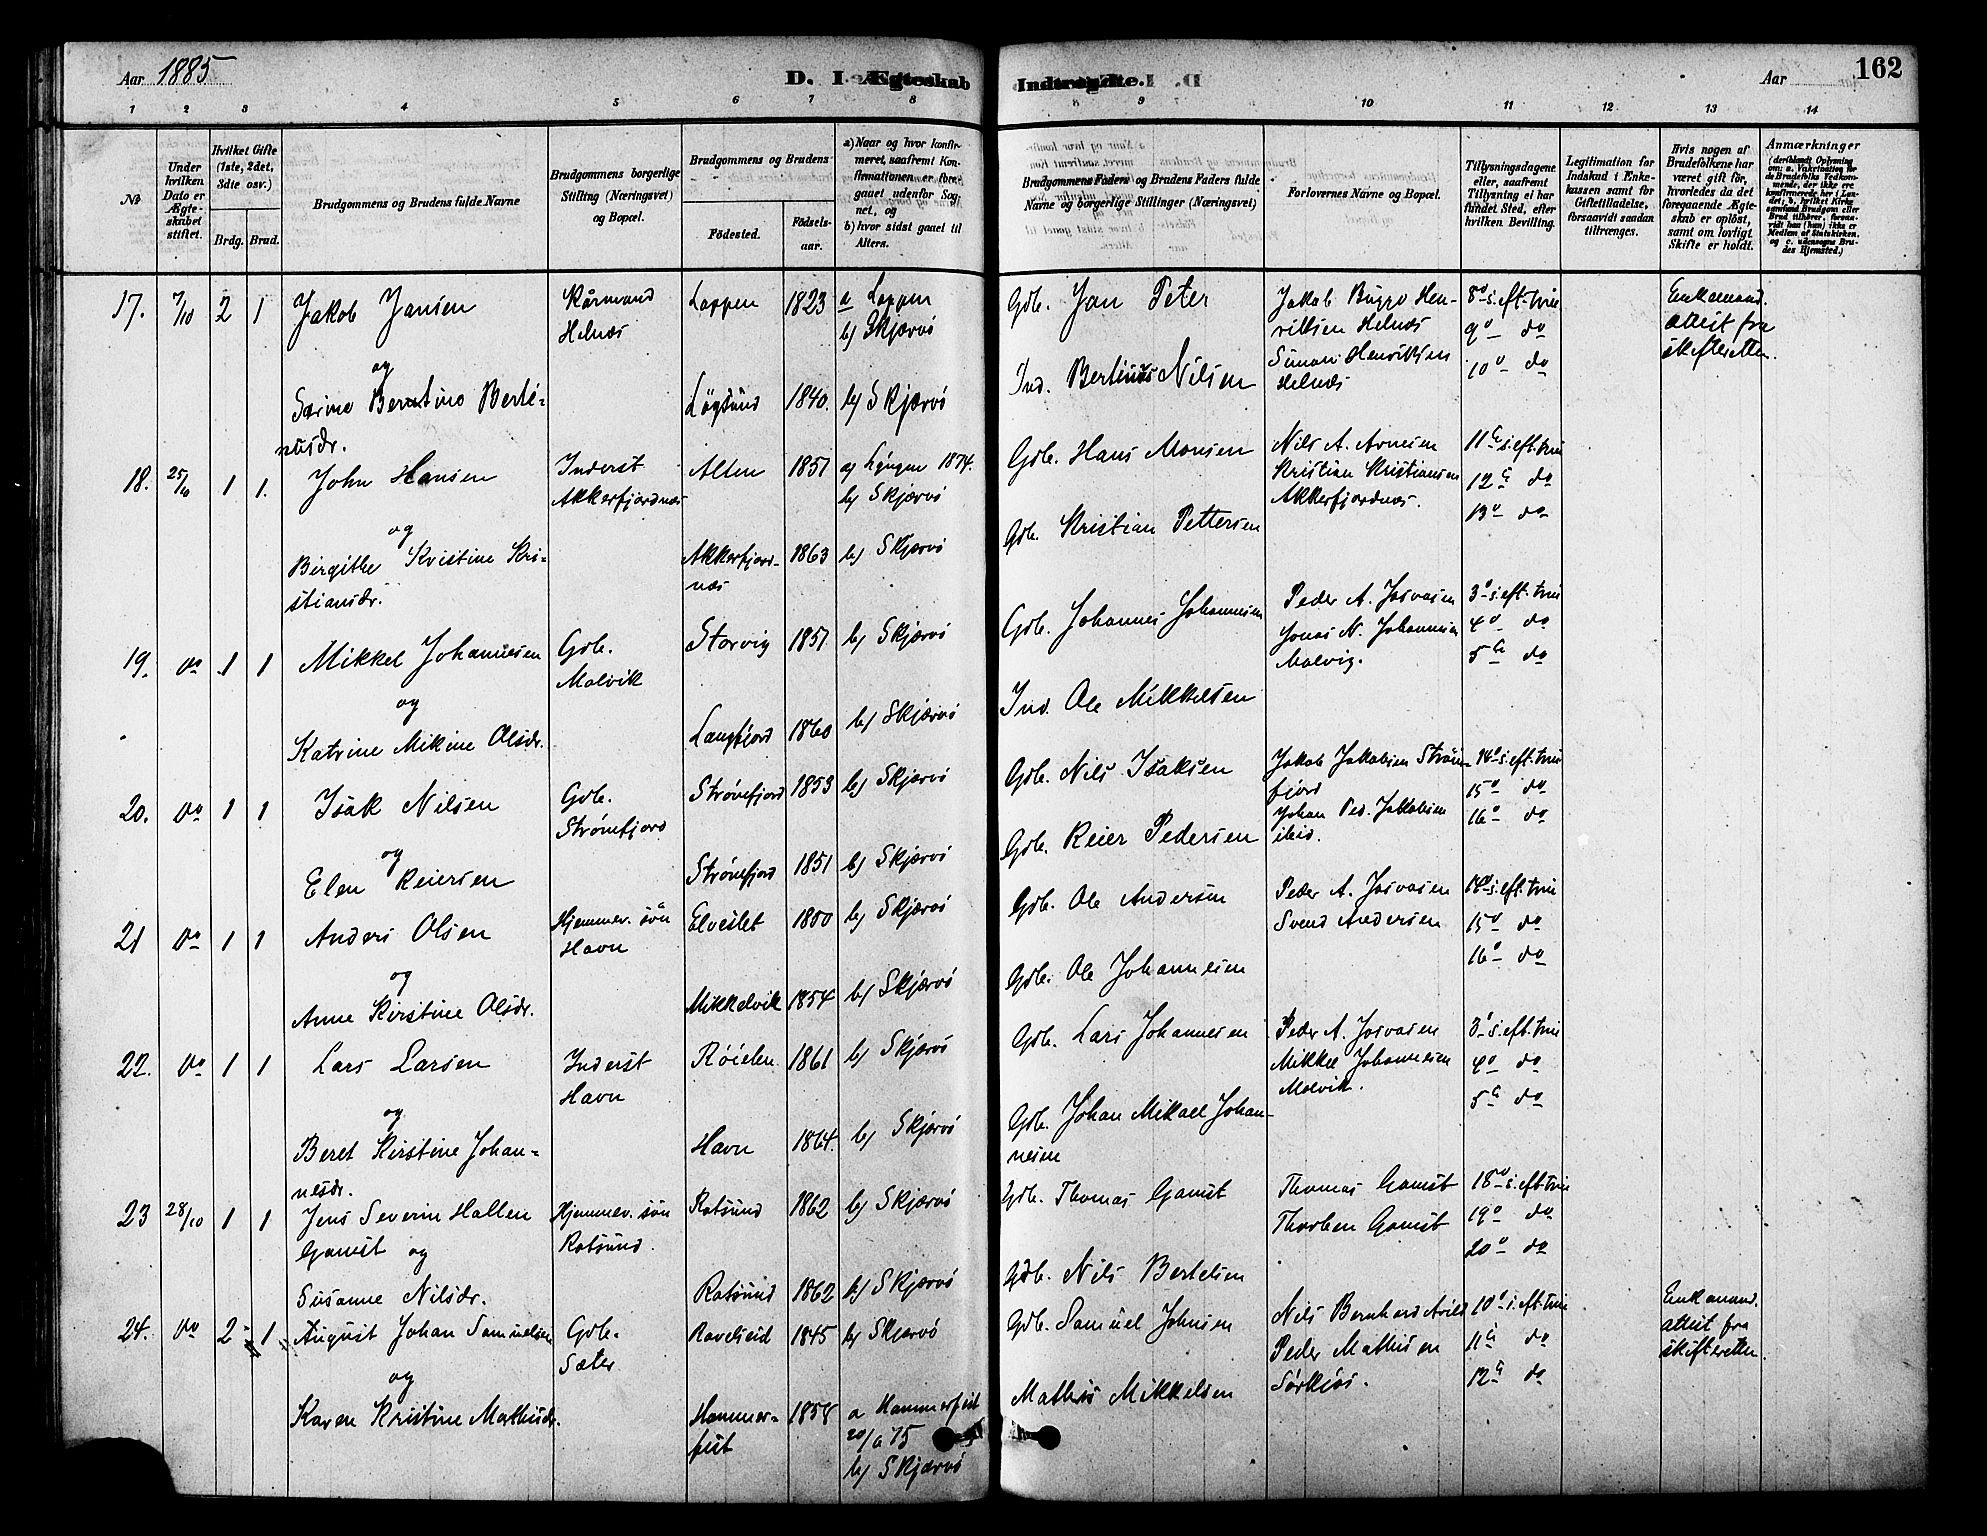 Aar 1885
D. I Ægteskab
Indtrædte.
Aar
162
1 2 3 4 5 6 7 8 9 10 11 12 13 14
No
Under hvilken Dato er Ægteskabet stiftet.
Hvilket Gifte (1ste, 2det, 3die osv.)
Brdg. Brud.
Brudgommens og Brudens fulde Navne
Brudgommens borgerlige Stilling (Næringsvei) og Bopæl.
Brudgommens og Brudens
Fødested.
Fødselsaar.
a) Naar og hvor konfirmeret, saafremt Konfirmationen er foregaaet udenfor Sognet, og
b) hvor sidst gaaet til Alters.
Brudgommens Faders og Brudens Faders fulde Navne og borgerlige Stillinger (Næringsvei)
Forlovernes Navne og Bopæl.
Tillysningsdagene eller, saafremt Tillysning ei har fundet Sted, efter hvilken Bevilling.
Legitimation for Indskud i Enkekassen samt for Giftetilladelse, forsaavidt saadan tiltrænges.
Hvis nogen af Brudefolkene har været gift før, hvorledes da det foregaaende Ægteskab er opløst, samt om lovligt Skifte er holdt.
Anmærkninger
17. 7/10 2 1 Jakob Jansen Kårmand Helnæs Loppen 1823 a Loppen b) Skjærvö Gdb. Jan Peter Jakob Buggo Henriksen Helnæs 8o s. eft. trin 9o do Enkemand. attest fra skifteretten.
og
Berntine Bertinusdr. Løgsund 1840. b) Skjærvö Ind. Bertinus Nilsen Simon Henriksen Helnæs 10o do
18. 25/10 1 1. John Hansen Inderst Akkerfjordnæs Alten 1851 a) Lyngen 1874. b) Skjærvö Gdb. Hans Monsen Nils A. Arnesen Kristian Kristiansen Akkerfjordnæs. 11te s. eft. trin 12te do 13o do
og
Birgithe Kristine Kristiansdr. Akkerfjordnæs 1863 b) Skjærvö Gdb. Kristian Pettersen
19. do 1 1 Mikkel Johannesen Gdb. Malvik Storvig 1857 b) Skjærvö Gdb. Johannes Johannesen Peder A. Josvasen Jonas N. Johannesen Malvig. 3o s. eft. trin 4o do 5te do
og
Katrine Mikine Olsdr. Langfjord 1860 b) Skjærvö Ind. Ole Mikkelsen
20. do 1 1 Isak Nilsen Gdb. Strømfjord Strømfjord 1853 b) Skjærvö Gdb. Nils Isaksen Jakob Jakobsen Strømfjord Johan Ped. Jakobsen ibid. 14o s. eft. trin 15o do 16o do
og
Elen Reiersen Strømfjord 1851 b) Skjærvö Gdb. Reier Pedersen
21 do 1 1 Anders Olsen Hjemmev. sön Havn Elveslet 1850 b) Skjærvö Gdb. Ole Andersen Peder A. Josvasen Svend Andersen 14o s. eft. trin 15o do 16o do
og
Anne Kirstine Olsdr. Mikkelvik 1854 b) Skjærvö Gdb. Ole Johannesen
22. do 1 1 Lars Larsen Inderst Havn Röielen 1861 b) Skjærvö Gdb. Lars Johannesen Peder A. Josvasen Mikkel Johannesen Malvik. 3o s. eft. trin 4o do 5te do
og
Beret Kirstine Johannesdr. Havn 1864. b) Skjærvö Gdb. Johan Mikael Johannesen
23 28/10 1 1 Jens Severin Hallen Gamst og Hjemmev. sön Rotsund. Rotsund 1862 b) Skjærvö Gdb. Thomas Gamst Thomas Gamst Thorben Gamst 18o s. eft. trin 19o do 20o do
Susanne Nilsdr. Rotsund 1862 b) Skjærvö Gdb. Nils Bertelsen
24. do 2 1 August Johan Samuelsen Gdb. Sæter Ravelseid 1845 b) Skjærvö Gdb. Samuel Johnsen Nils Bernhard Arild Peder Mathisen Sörkjos. 10o s. eft. trin 11te do 12te do Enkemand. attest fra skifteretten.
og
Karen Kristine Mathisdr. Hammerfest 1858 a Hammerfest 20/6 75 b) Skjærvö Mathis Mikkelsen